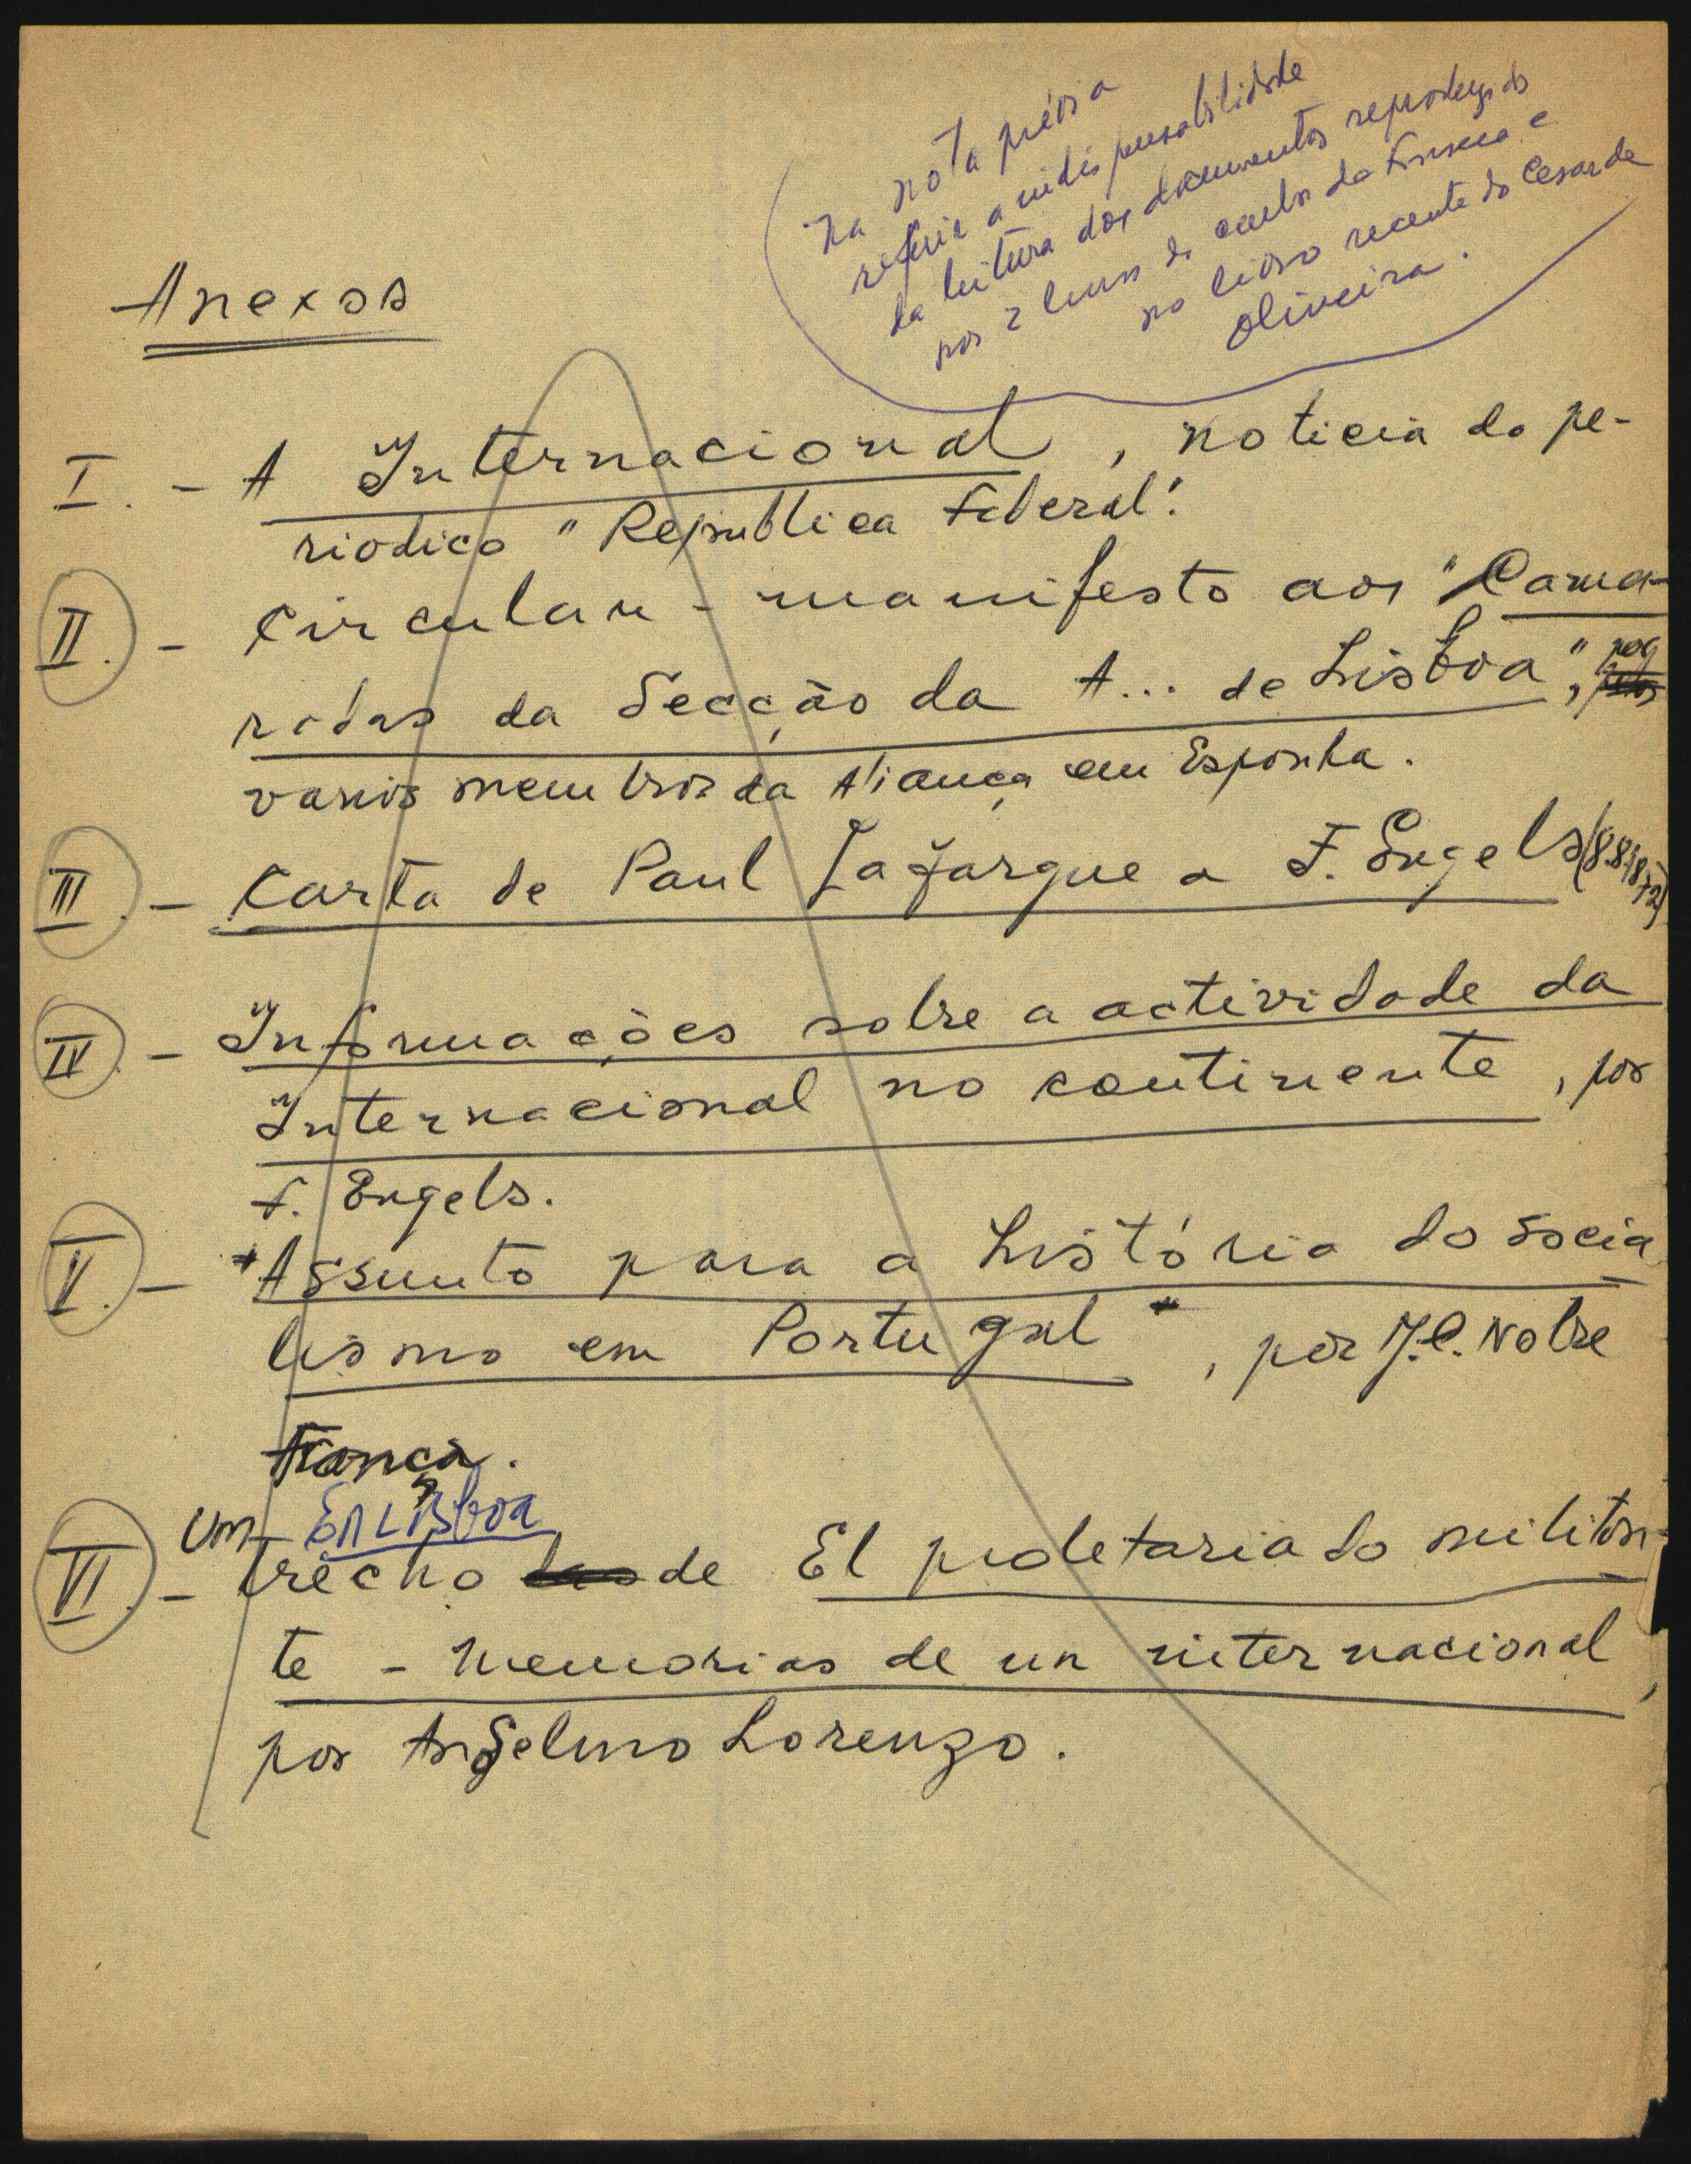 na nota prévia
referir a indispensabilidade
da leitura dos documentos reproduzidos
nos 2 livros de Carlos da Fonseca e
no livro recente do Cesar de
Oliveira.
Anexos
I. - A Internacional, noticia do pe-
riodico "Republica Federal".
II. - Circular - manifesto aos "Cama-
radas da Secção da A... de Lisboa", por
varios membros da Aliança em Espanha.
III. - Carta de Paul Lafargue a F. Engels
IV. - Informações sobre a actividade da
Internacional no continente, por
F. Engels.
V. - "Assunto para a história do socia
lismo em Portugal", por J.C. Nobre
França.
Em Lisboa
VI. - Um trecho de El proletariado militan-
te - Memorias de un internacional,
por Anselmo Lorenzo.